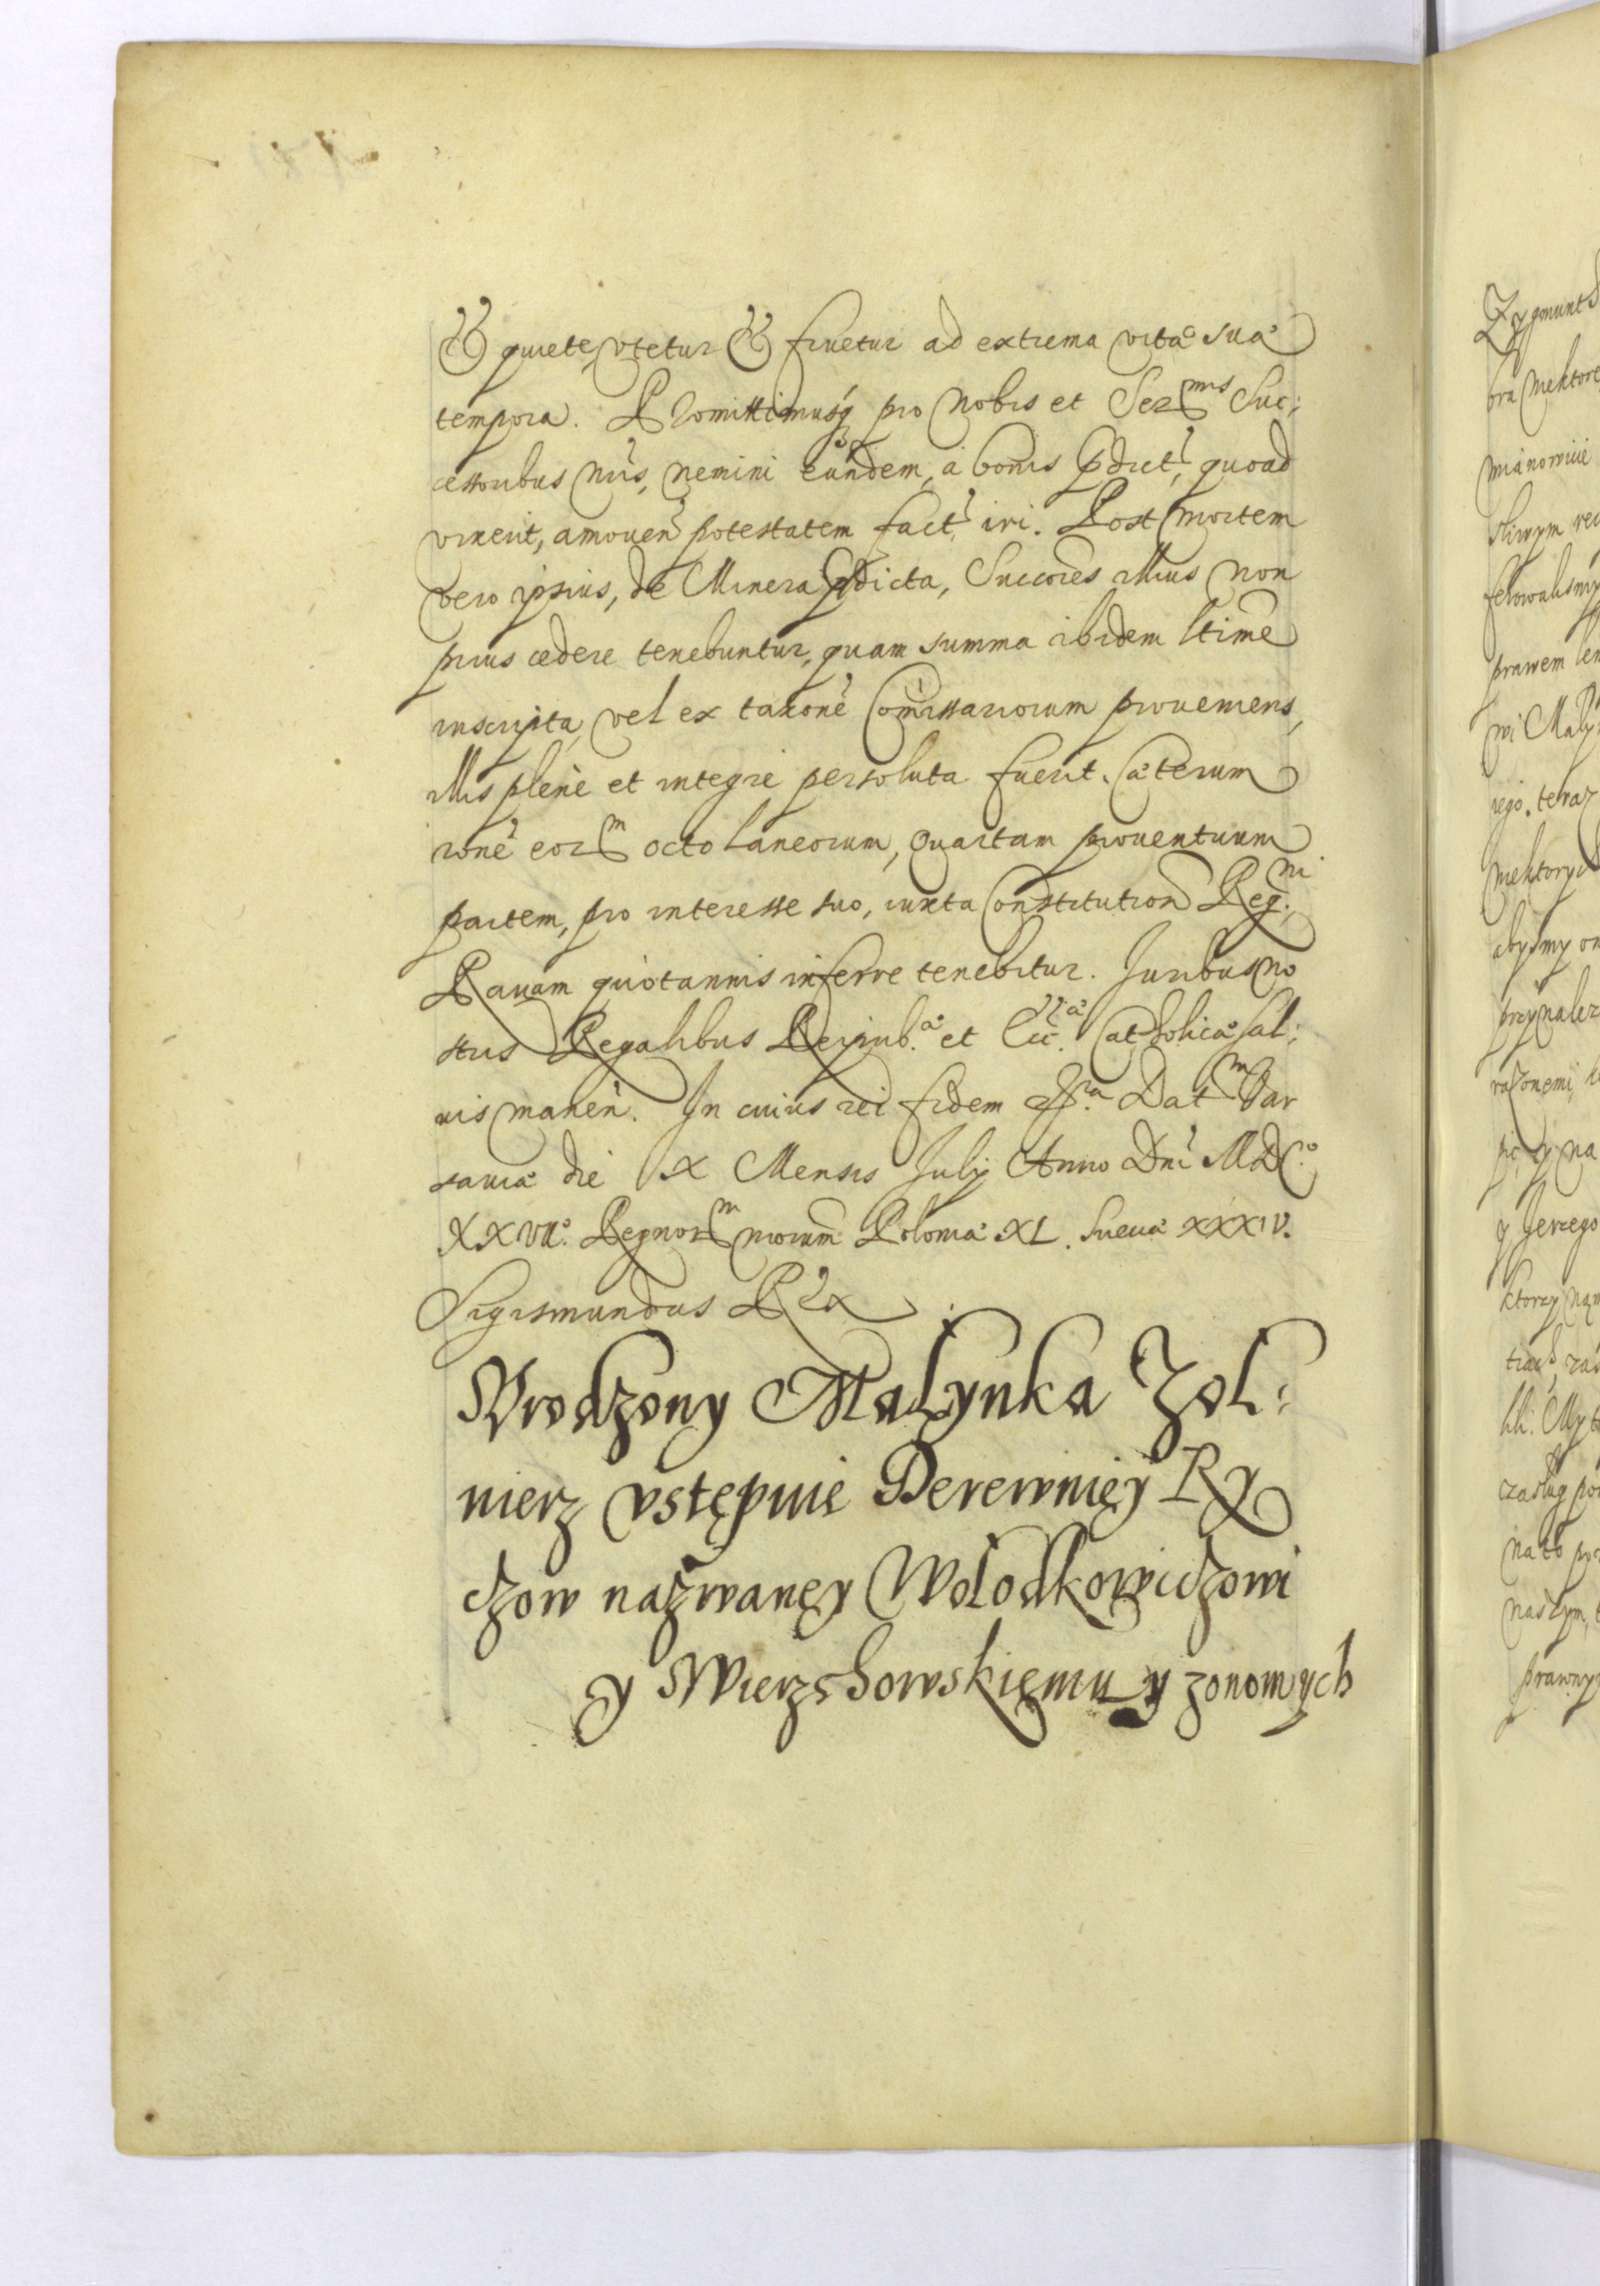 & quiete vtetur & fruetur ad extrema vitæ suæ
tempora. Promittimusq; pro nobis et Ser^mis Suc:
cessoribus nris, nemini eundem, a bonis pdict, quoad
vixerit, amouen potestatem fact iri. Post mortem
vero ipsius, de Minera pdicta, Succores illius non
prius cedere tenebuntur, quam summa ibidem ltime
inscripta, vel ex taxone Comissariorum proueniens,
illis plene et integre persoluta fuerit. Cæterum
rone eor^m octo laneorum, quartam prouentuum
partem, pro interesse suo, iuxta Constitution Reg^ni
Rauam quotannis inferre tenebitur. Juribus no
stris Regalibus Reipub.æ et Ecc.æ Catholicæ sal:
uis manen. In cuius rei fidem Dat^m Var
sauiæ die X Mensis Julij Anno Dni MDC.o
XXVII.o Regnor^m nrorum Poloniæ XL. Sueciæ XXXIV.
Sigismundus Rex
Vrodzony Malynka Zol:
nierz vstępuie Derewnięy Ry
czow nazwanęy Wołodkowiczowi
y Wierzchowskięmu y zonom ych
Zygmunt
bra niektore
mianowiie
prawem
wi Maly
iego. teraz
niektorych
abysmy
przynalez
y na
y Jerzego
ktorzy
My
czasług
na to
naszym,
prawny